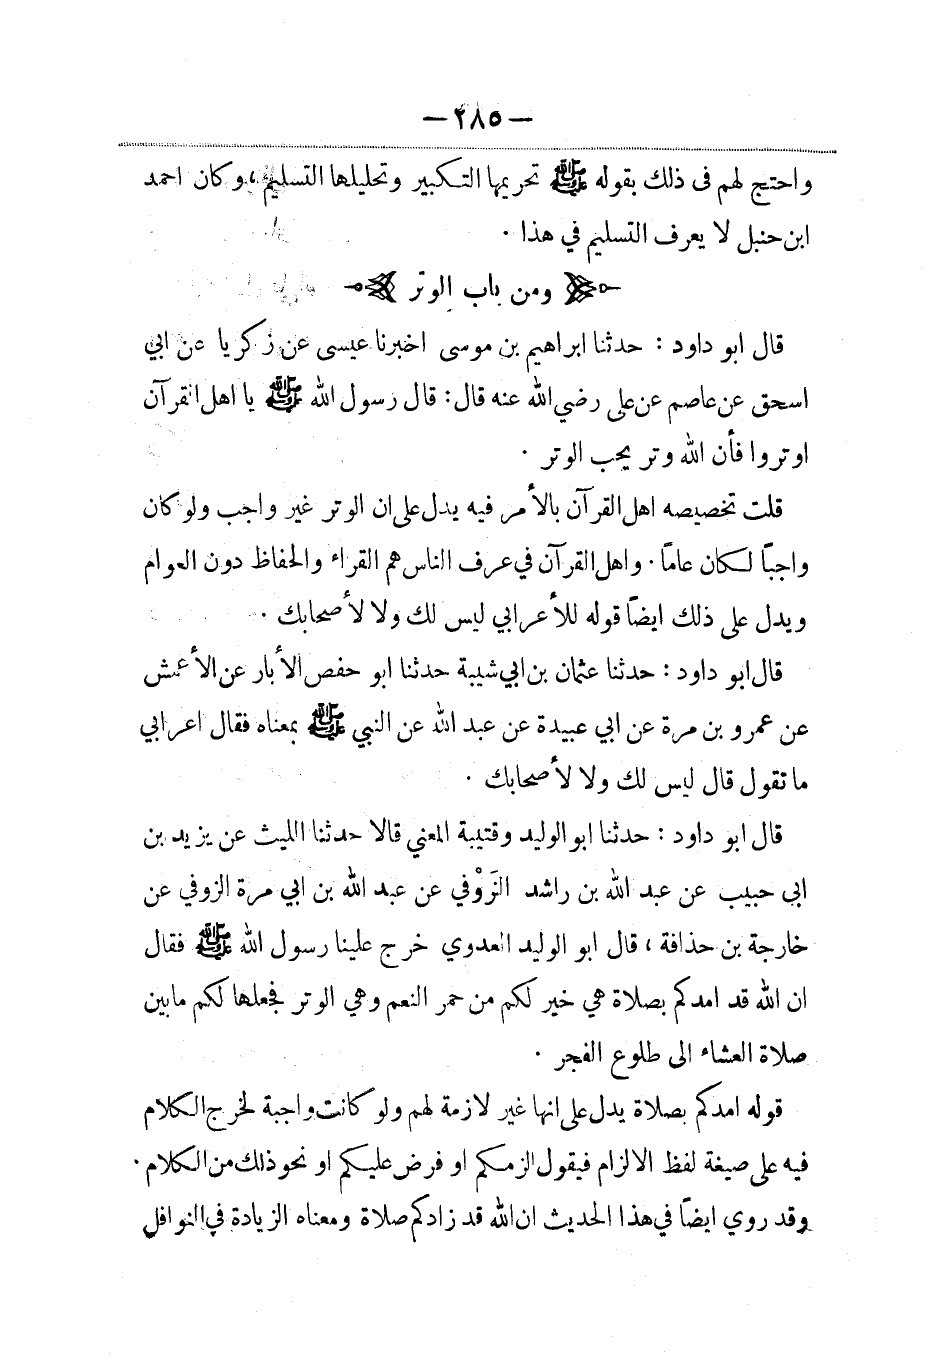 — ٢٨٥ —
واحتج لهم فى ذلك بقوله ﷺ تحريمها التكبير وتحليلها التسليم ، وكان احمد
ابن حنبل لا يعرف التسليم في هذا .
ومن باب الوتر
قال ابو داود : حدثنا ابراهيم بن موسى اخبرنا عيسى عن زكريا عن ابي
اسحق عن عاصم عن على رضي الله عنه قال : قال رسول الله ﷺ يا اهل القرآن
اوتروا فأن الله وتر يحب الوتر .
قلت تخصيصه اهل القرآن بالأمر فيه يدل على ان الوتر غير واجب ولو كان
واجباً لكان عاماً . واهل القرآن في عرف الناس هم القراء والحفاظ دون العوام
ويدل على ذلك ايضاً قوله للأعرابي ليس لك ولا لأصحابك .
قال ابو داود : حدثنا عثمان بن ابي شيبة حدثنا ابو حفص الأبار عن الأعمش
عن عمرو بن مرة عن ابي عبيدة عن عبد الله عن النبي ﷺ بمعناه فقال اعرابي
ما تقول قال ليس لك ولا لأصحابك .
قال ابو داود : حدثنا ابو الوليد وقتيبة المعني قالا حدثنا الليث عن يزيد بن
ابى حبيب عن عبد الله بن راشد الزَوْفي عن عبد الله بن ابي مرة الزوفي عن
خارجة بن حذافة ، قال ابو الوليد العدوي خرج علينا رسول الله ﷺ فقال
ان الله قد امدكم بصلاة هي خير لكم من حمر النعم وهي الوتر فجعلها لكم مابين
صلاة العشاء الى طلوع الفجر .
قوله امدكم بصلاة يدل على انها غير لازمة لهم ولو كانت واجبة لخرج الكلام
فيه على صيغة لفظ الالزام فيقول الزمكم او فرض عليكم او نحو ذلك من الكلام .
وقد روي ايضاً في هذا الحديث ان الله قد زادكم صلاة ومعناه الزيادة في النوافل